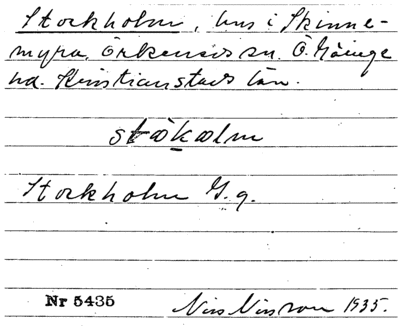 Stockholm, hus i Skinne-
myra, Örkeneds sn. Ö. Göinge
hd. Kristianstads län.
ståkålm
Stockholm G. g.
Nr 5435 Nils Nilsson 1935.